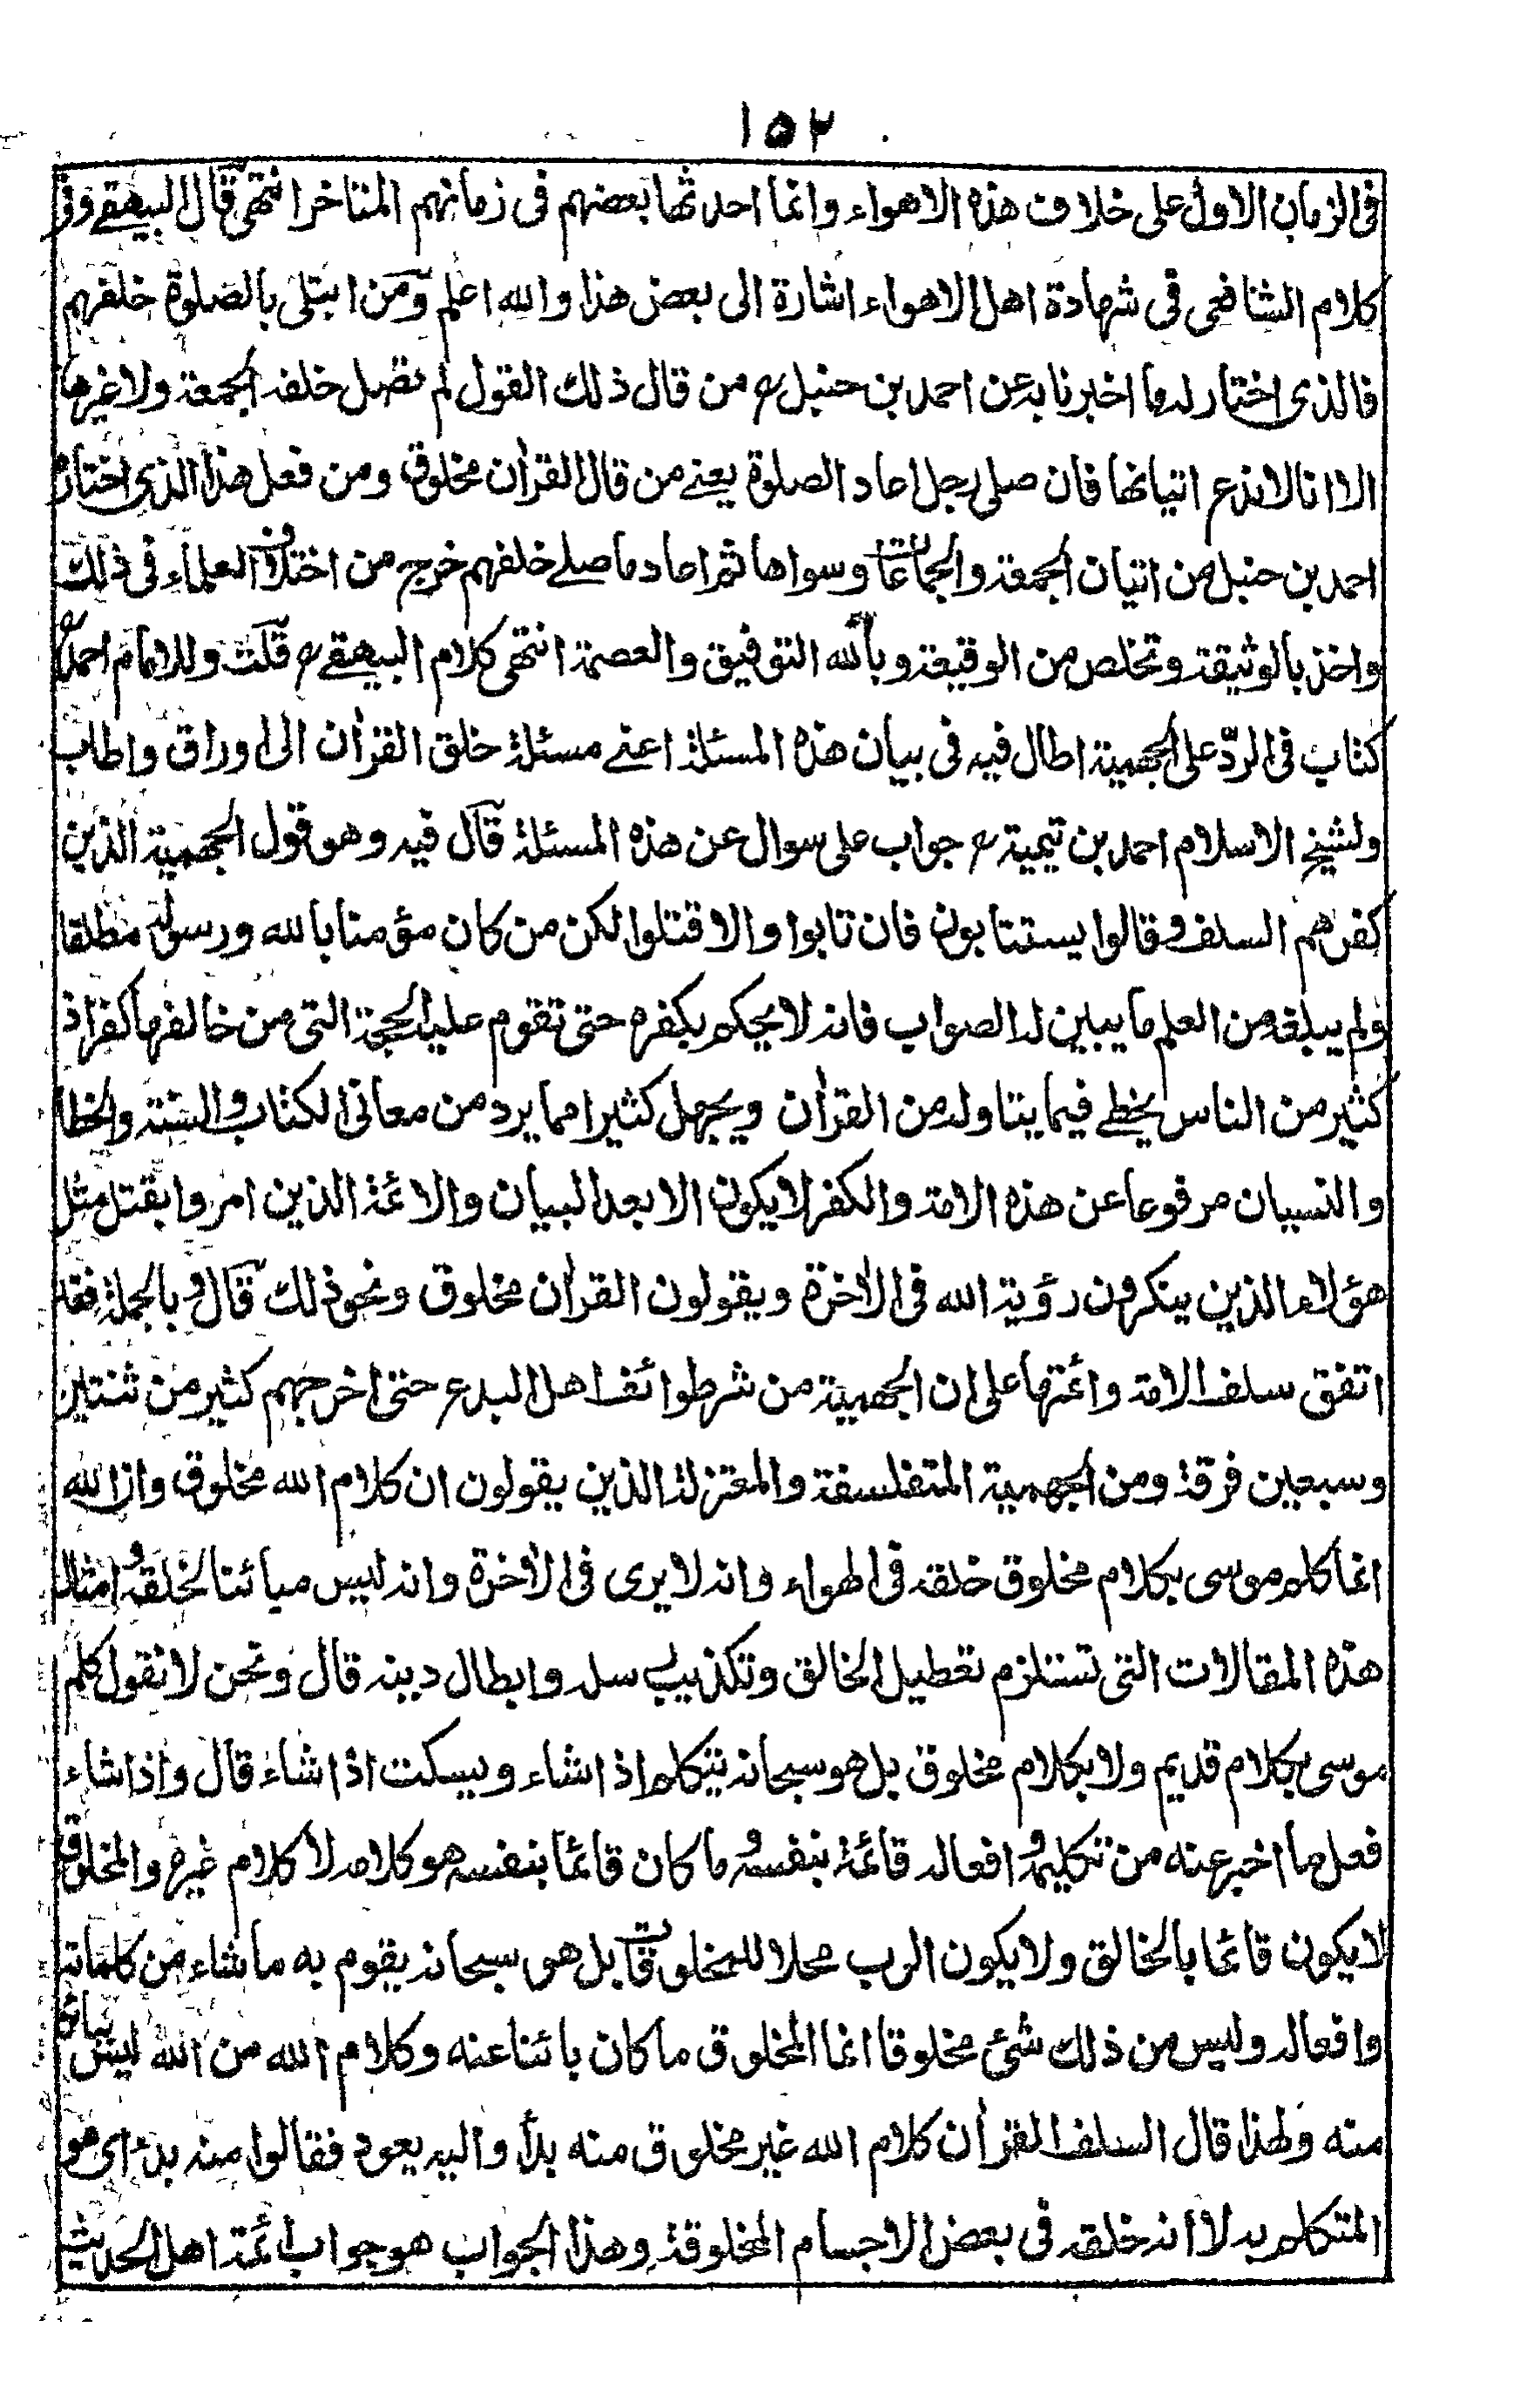 ١٥٢
فى الزمان الاول على خلاف هذه الاهواء وانما احدثها بعضهم فى زمانهم المتاخر انتهى قال البيهقے وفى
كلام الشافعى فى شهادة اهل الاهواء اشارة الى بعض هذا والله اعلم ومن ابتلى بالصلوة خلفهم
فالذى اختار له ما اخبرنا به عن احمد بن حنبل رح من قال ذلك القول لم نصل خلفه الجمعة ولا غيرها
الا انا لا ندع اتيانها فان صلى رجل اعاد الصلوة يعنے من قال القرأن مخلوق ومن فعل هذا الذى اختاره
احمد بن حنبل من اتيان الجمعة والجماعات وسواها ثم اعاد ما صلے خلفهم خرج من اختلاف العلماء فى ذلك
واخذ بالوثيقة وتخلص من الوقيعة وبالله التوفيق والعصمة انتهى كلام البيهقے رح قلت وللامام احمد رح
كتاب فى الردّ على الجهمية اطال فيه فى بيان هذه المسئلة اعنے مسئلة خلق القرأن الى اوراق واطاب
ولشيخ الاسلام احمد بن تيمية رح جواب على سوال عن هذه المسئلة قال فيه وهو قول الجهمية الذين
كفرهم السلف وقالوا يستتابون فان تابوا والا قتلوا لكن من كان مؤمنا بالله ورسوله مطلقا
ولم يبلغه من العلم ما يبين له الصواب فانه لا يحكم بكفره حتى تقوم عليه الحجة التى من خالفها كفر اذ
كثير من الناس يخطے فيما يتاوله من القرأن ويجهل كثيرا مما يرد من معانى الكتاب والسنة والخطا
والنسيان مرفوعا عن هذه الامة والكفر لا يكون الا بعد البيان والائمة الذين امروا بقتل مثل
هؤلاء الذين ينكرون رؤية الله فى الأخرة ويقولون القرأن مخلوق ونحو ذلك قال وبالجملة فقد
اتفق سلف الامة وائمتها على ان الجهمية من شر طوائف اهل البدع حتى اخرجهم كثير من ثنتين
وسبعين فرقة ومن الجهمية المتفلسفة والمعتزلة الذين يقولون ان كلام الله مخلوق وان الله
انما كلم موسى بكلام مخلوق خلقه فى الهواء وانه لا يرى فى الأخرة وانه ليس مبائنا لخلقه وامثال
هذه المقالات التى تستلزم تعطيل الخالق وتكذيب رسله وابطال دينه قال ونحن لا نقول كلم
موسى بكلام قديم ولا بكلام مخلوق بل هو سبحانه يتكلم اذا شاء ويسكت اذا شاء قال واذا شاء
فعل ما اخبر عنه من تكليمه وافعاله قائمة بنفسه وما كان قائما بنفسه هو كلامه لا كلام غيره والمخلوق
لا يكون قائما بالخالق ولا يكون الرب محلا للمخلوقات بل هو سبحانه يقوم به ما شاء من كلماته
وافعاله وليس من ذلك شئ مخلوقا انما المخلوق ما كان بائنا عنه وكلام الله من الله ليس ببائن
منه ولهذا قال السلف القرأن كلام الله غير مخلوق منه بدأ واليه يعود فقالوا منه بدء اى هو
المتكلم به لا انه خلقه فى بعض الاجسام المخلوقة وهذا الجواب هو جواب ائمة اهل الحديث